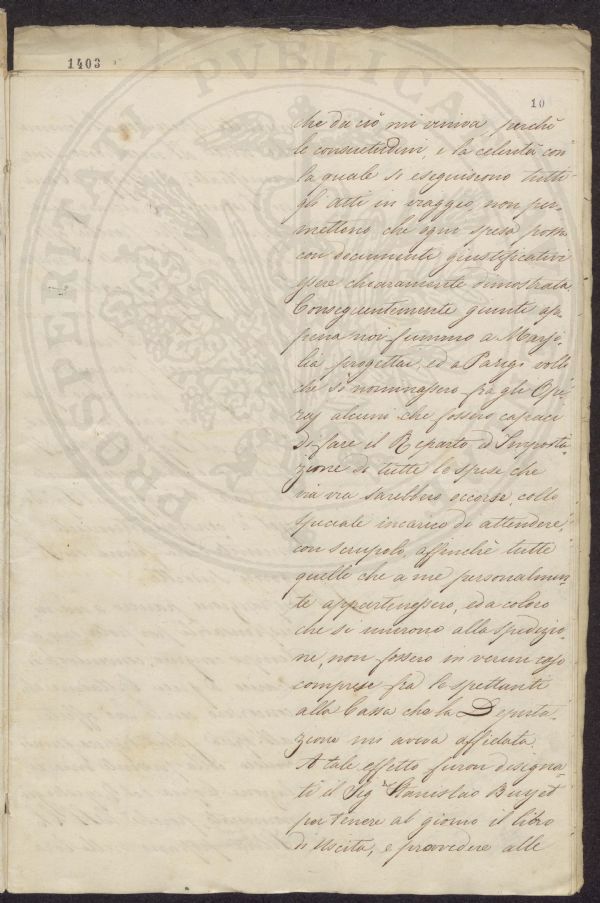 1403
10
che da ciò mi veniva perchè
le consuetudini, e la celerità con
la quale si eseguiscono tutti
gli atti in viaggio, non per-
mettono, che ogni spesa possa
con documenti giustificativi
essere chiaramente dimostrata
Conseguentemente giunti ap-
pena noi fummo a Marsi-
lia progettai, ed a Parigi volli
che si nominassero fra gli Ope-
raj alcuni che fossero capaci
di fare il Reparto ed Imposta-
zione di tutte le spese che
via via sarebbero occorse collo
speciale incarico di attendere,
con scrupolo, affinchè tutte
quelle che a me personalmen-
te appartenessero, ed a coloro
che si unirono alla spedizio-
ne, non fossero in verun caso
comprese fra le spettanti
alla Cassa che la Deputa-
zione mi aveva affidata.
A tale effetto furon designa-
ti il Sig.r Stanislao
per tenere al giorno il libro
di Uscita, e provvedere alle
PROSPERITATI PVBLICAE